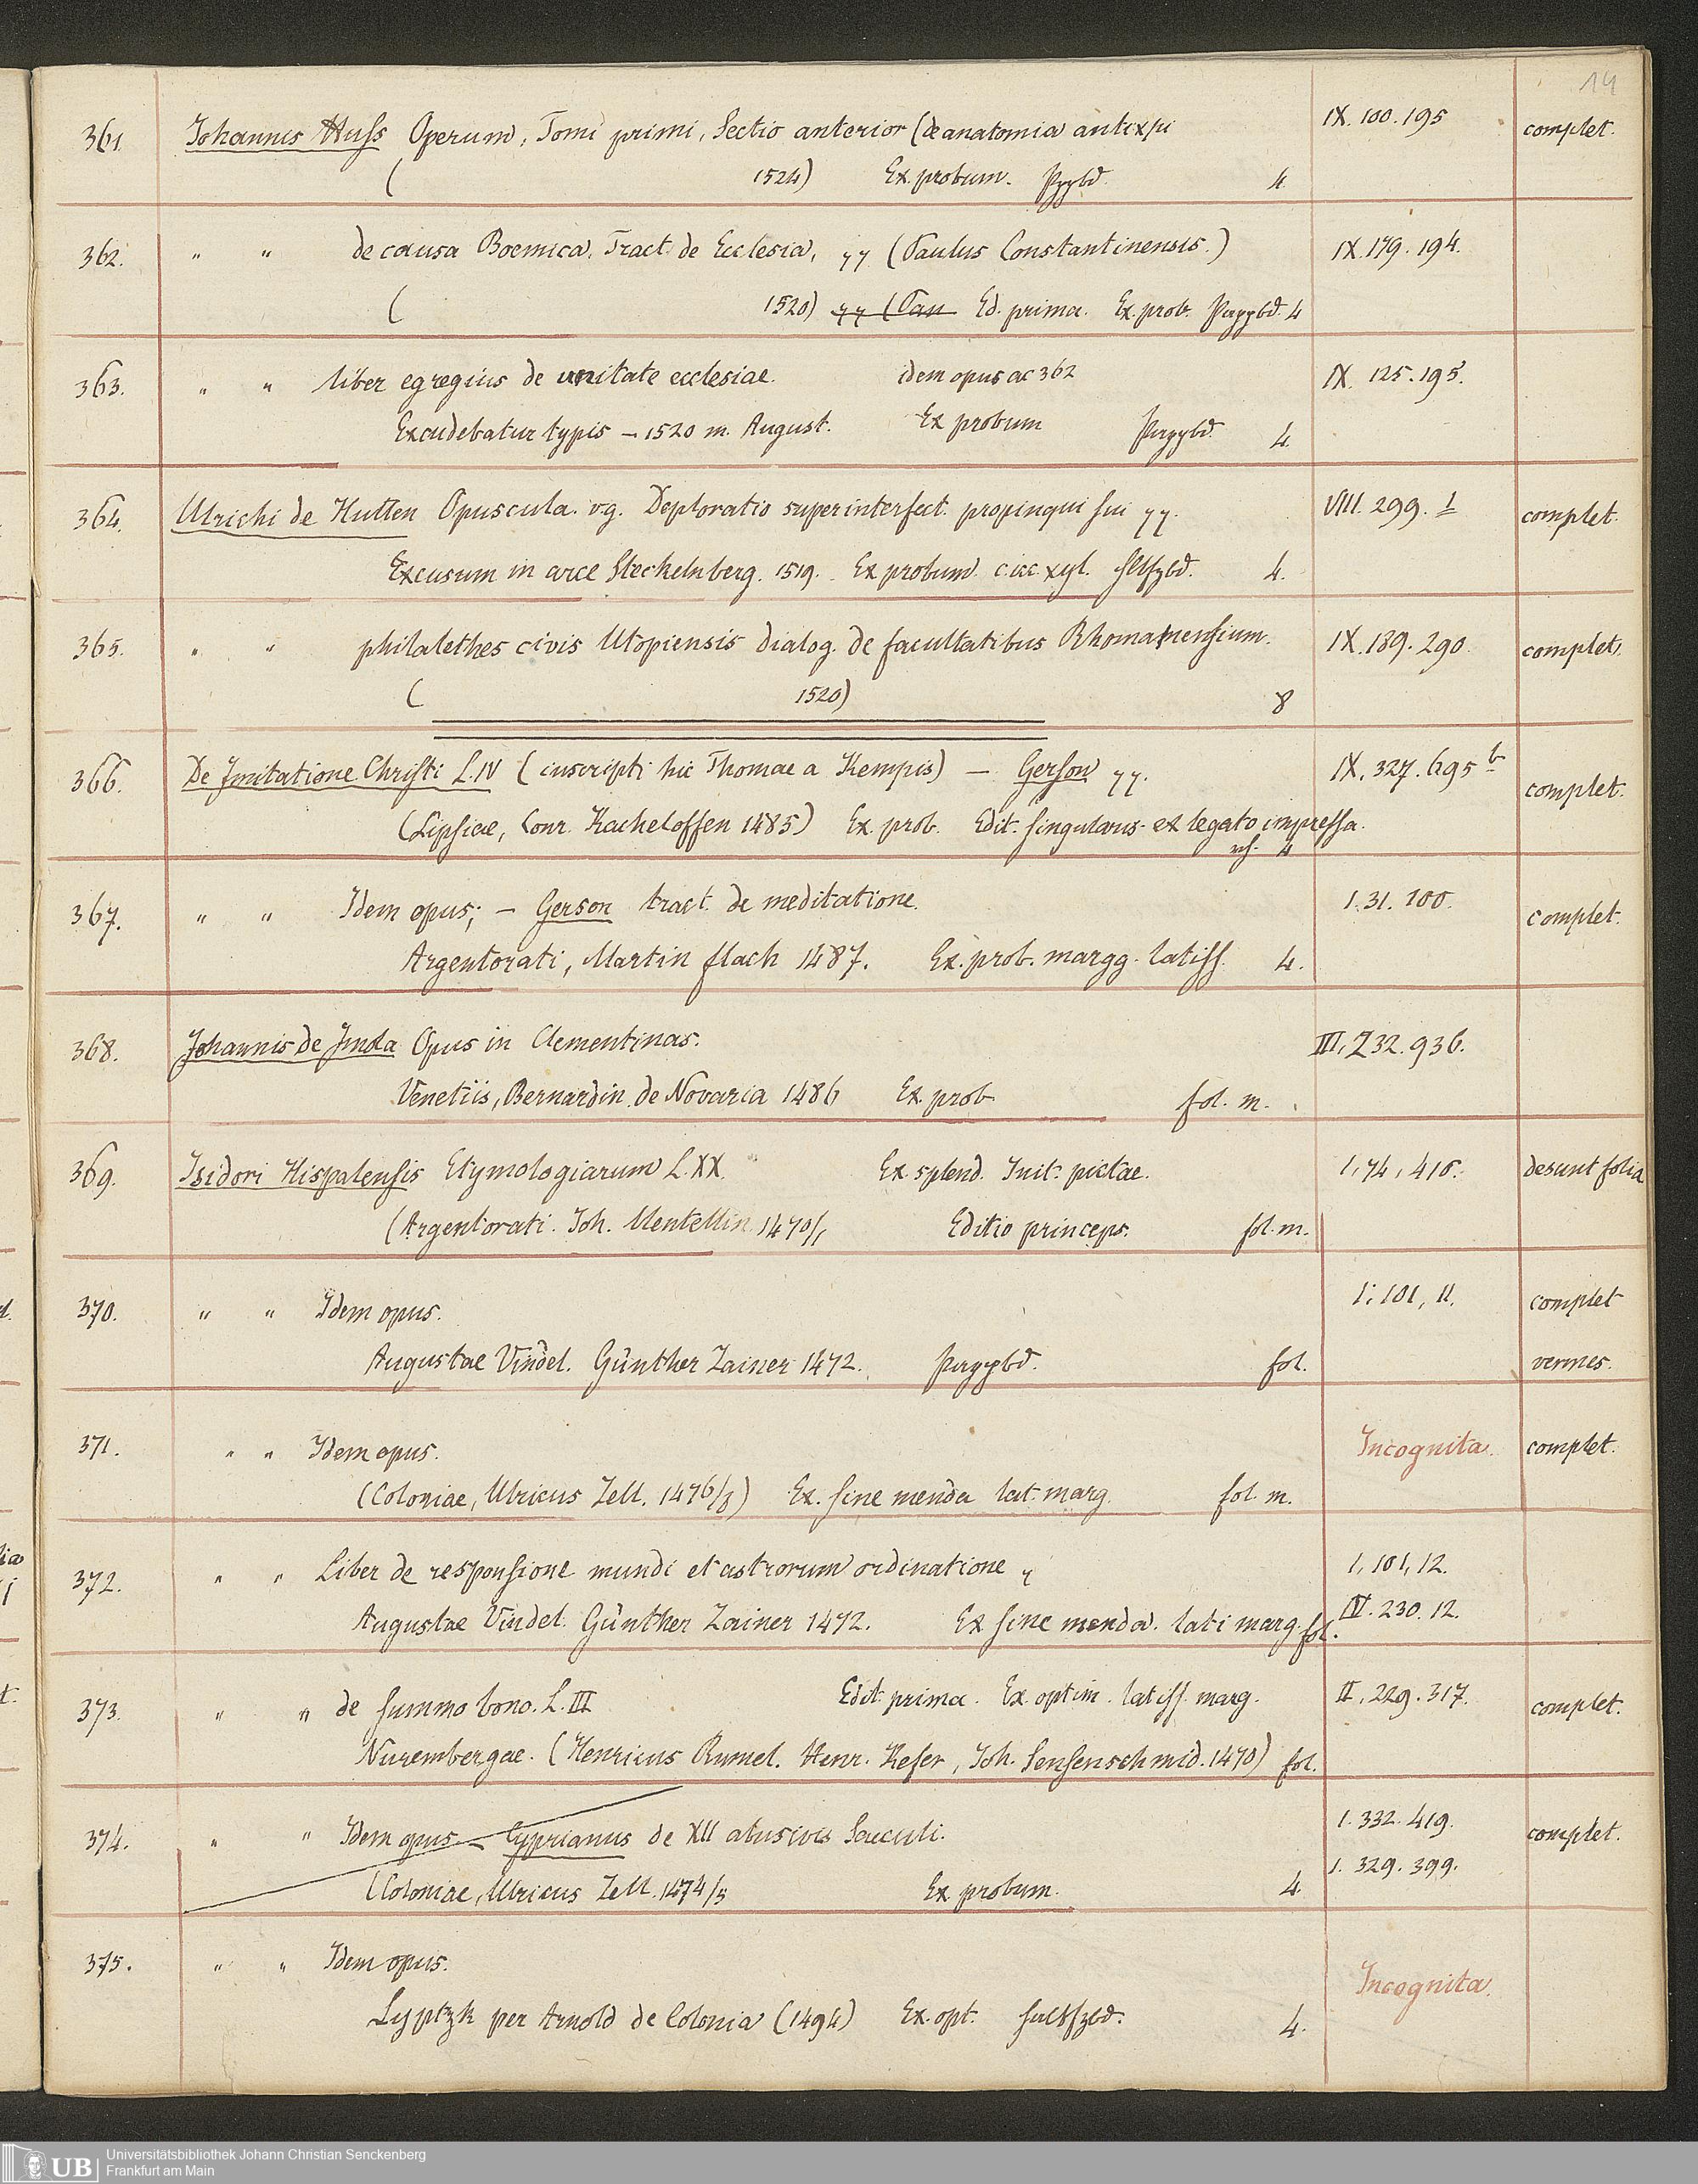 14
361. Johannis Huss Operum, Tomi primi, Sectio anterior (de anatomia antixpi IX. 100. 195 complet.
( 1524) Ex. probum. Pappbd. 4.
362. " " de causa Boemica. Tract. de Ecclesia, (Paulus Constantinensis.) IX. 179. 194.
( 1520) Ed. prima. Ex. prob. Pappbd. 4
363. " " liber egregius de unitate ecclesiae. idem opus ac 362 IX. 125. 195.
Excudebatur typis – 1520 m. August. Ex probum Pappbd. 4.
364. Ulrichi de Hutten Opuscula. vg. Deploratio super interfect. propinqui sui VIII. 299. 1 complet.
Excusum in arce Steckelnberg. 1519. Ex probum c. icc. xyl. Hlfzbd. 4.
365. " " philalethes civis Utopiensis dialog. de facultatibus Rhomanensium. IX. 189. 290. complet.
( 1520) 8
366. De Imitatione Christi L. IV (inscripti hic Thomae a Kempis) — Gerson IX. 327. 695 b complet.
(Lipsiae, Conr. Kacheloffen 1485) Ex. prob. Edit. singularis et legato impressa.
4
367. " " Idem opus; – Gerson tract. de meditatione. I. 31. 100. complet.
Argentorati, Martin flach 1487. Ex. prob. margg. latiss. 4.
368. Johannis de Imola Opus in Clementinas. III, 232. 936.
Venetiis, Bernardin. de Novaria 1486 Ex. prob fol. m.
369. Isidori Hispalensis Etymologiarum L. XX. Ex. splend. Init. pictae. I, 74, 418. desunt folia
(Argentorati. Joh. Mentellin 1470/1 Editio princeps. fol. m.
370. " " Idem opus. I, 101, 11. complet
Augustae Vindel. Günther Zainer 1472. Pappbd. fol. vermes.
371. " " Idem opus. Incognita. complet.
(Coloniae, Ulricus Zell. 1476/8) Ex. sine menda lat. marg. fol. m.
372. " " Liber de responsione mundi et astrorum ordinatione I, 101, 12.
Augustae Vindel. Günther Zainer 1472. Ex sine menda. lati marg. fol. IV. 230. 12.
373. " " de summo bono. L. III Edit. prima. Ex. optim. latiss. marg. II, 229. 317. complet.
Nurembergae. (Henricus Rumel. Henr. Kefer, Joh. Sensenschmid. 1470) fol.
374. " " Idem opus – Cyprianus de XII abusivis Saeculi. I. 332. 419. complet.
(Coloniae, Ulricus Zell. 1474/5 Ex probum. 4. I. 329. 399.
375. " " Idem opus. Incognita.
Lyptzk per Arnold de Colonia (1494) Ex. opt. Halbfzbd. 4.
UB Universitätsbibliothek Johann Christian Senckenberg
Frankfurt am Main